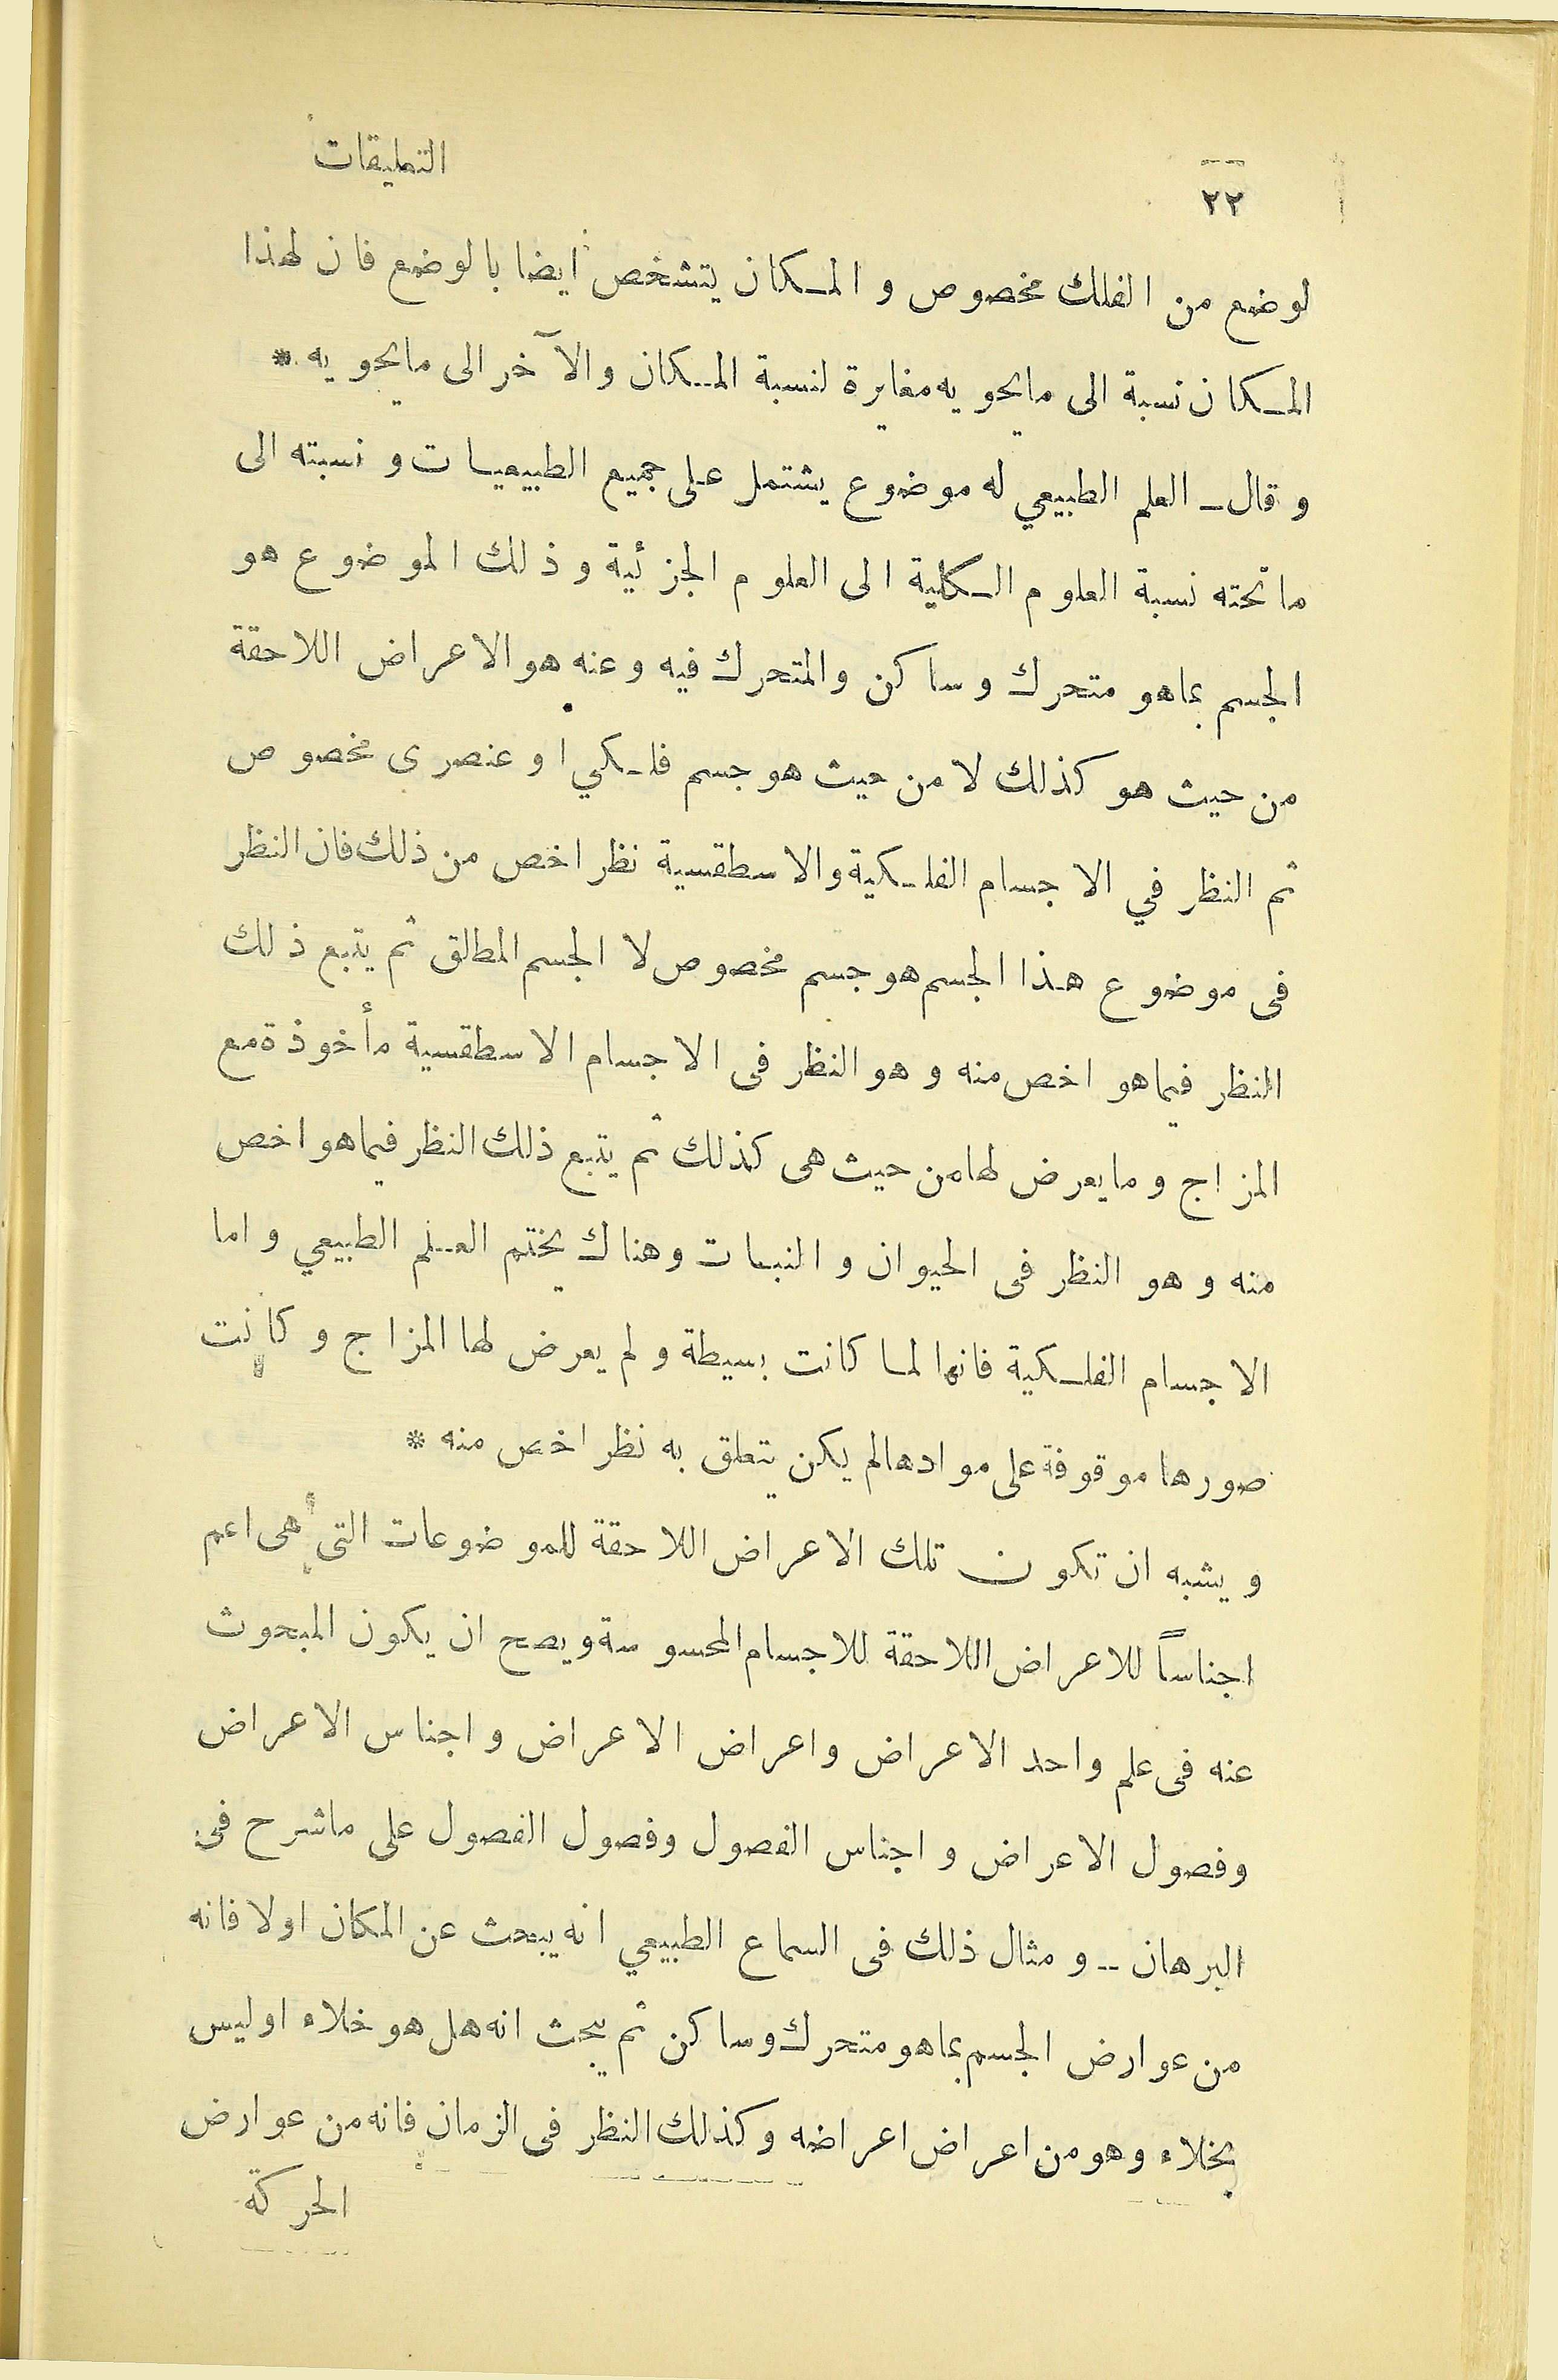 ٢٢
التعليقات
لوضع من الفلك مخصوص و المكان يتشخص ايضا بالوضع فان لهذا
المكان نسبة الى مايحويه مغايرة لنسبة المكان والآخر الى مايحويه *
و قال - العلم الطبيعي له موضوع يشتمل على جميع الطبيعيات و نسبته الى
ماتحته نسبة العلوم الكلية الى العلوم الجزئية وذلك الموضوع هو
الجسم بماهو متحرك وساكن والمتحرك فيه وعنه هو الاعراض اللاحقة
من حيث هو كذلك لا من حيث هو جسم فلكي او عنصرى مخصوص
ثم النظر في الاجسام الفلكية والاسطقسية نظر اخص من ذلك فان النظر
فى موضوع هذا الجسم هو جسم مخصوص لا الجسم المطلق ثم يتبع ذلك
النظر فيماهو اخص منه و هو النظر فى الاجسام الاسطقسية مأخوذة مع
المزاج و مايعرض لهامن حيث هى كذلك ثم يتبع ذلك النظر فيماهو اخص
منه و هو النظر فى الحيوان و النبات وهناك يختم العلم الطبيعي و اما
الاجسام الفلكية فانها لما كانت بسيطة و لم يعرض لها المزاج و كانت
صورها موقوفة على موادهالم يكن يتعلق به نظر اخص منه *
و يشبه ان تكون تلك الاعراض اللاحقة للموضوعات التى هى اعم
اجناساً للاعراض اللاحقة للاجسام المحسوسة ويصح ان يكون المبحوث
عنه فى علم واحد الاعراض واعراض الاعراض و اجناس الاعراض
وفصول الاعراض و اجناس الفصول وفصول الفصول على ماشرح فى
البرهان -- و مثال ذلك فى السماع الطبيعي انه يبحث عن المكان اولا فانه
من عوارض الجسم بماهو متحرك وساكن ثم يبحث انه هل هو خلاء اوليس
بخلاء وهو من اعراض اعراضه وكذلك النظر فى الزمان فانه من عوارض
الحركة